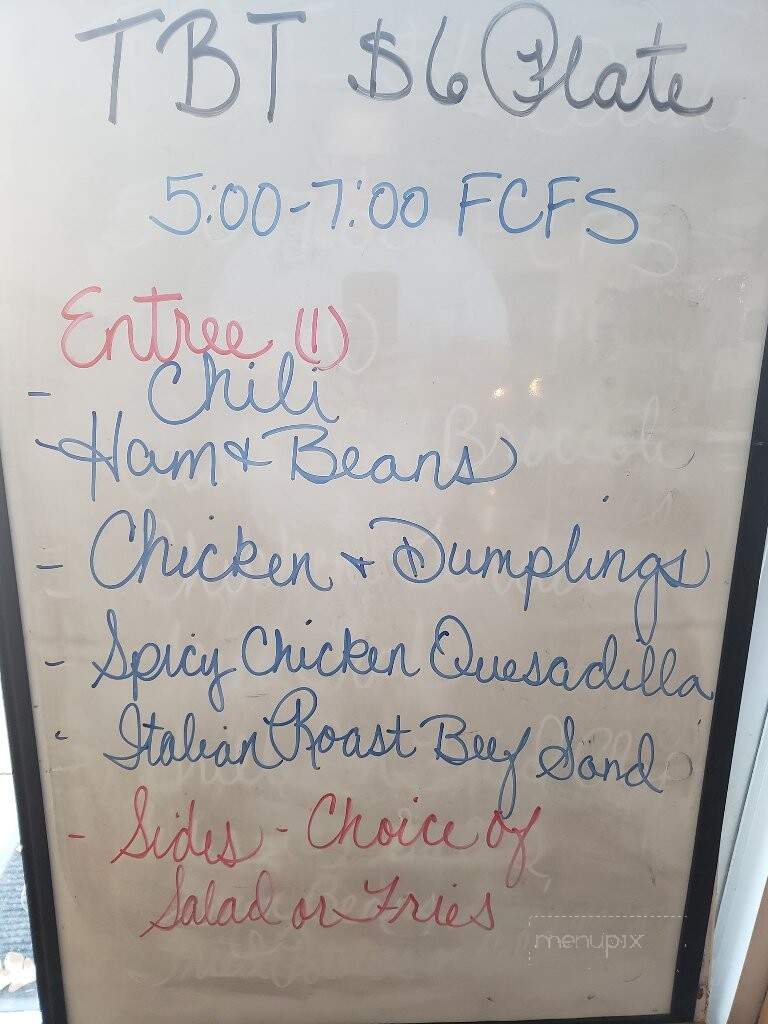 TBT $6 Plate
5:00-7:00 FCFS
Entree (1)
- Chili
- Ham & Beans
- Chicken & Dumplings
- Spicy Chicken Quesadilla
- Italian Roast Beef Sand
- Sides - Choice of
Salad or Fries
menupix